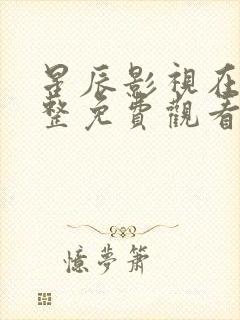 星辰影視在
整免費觀看
憶夢簫